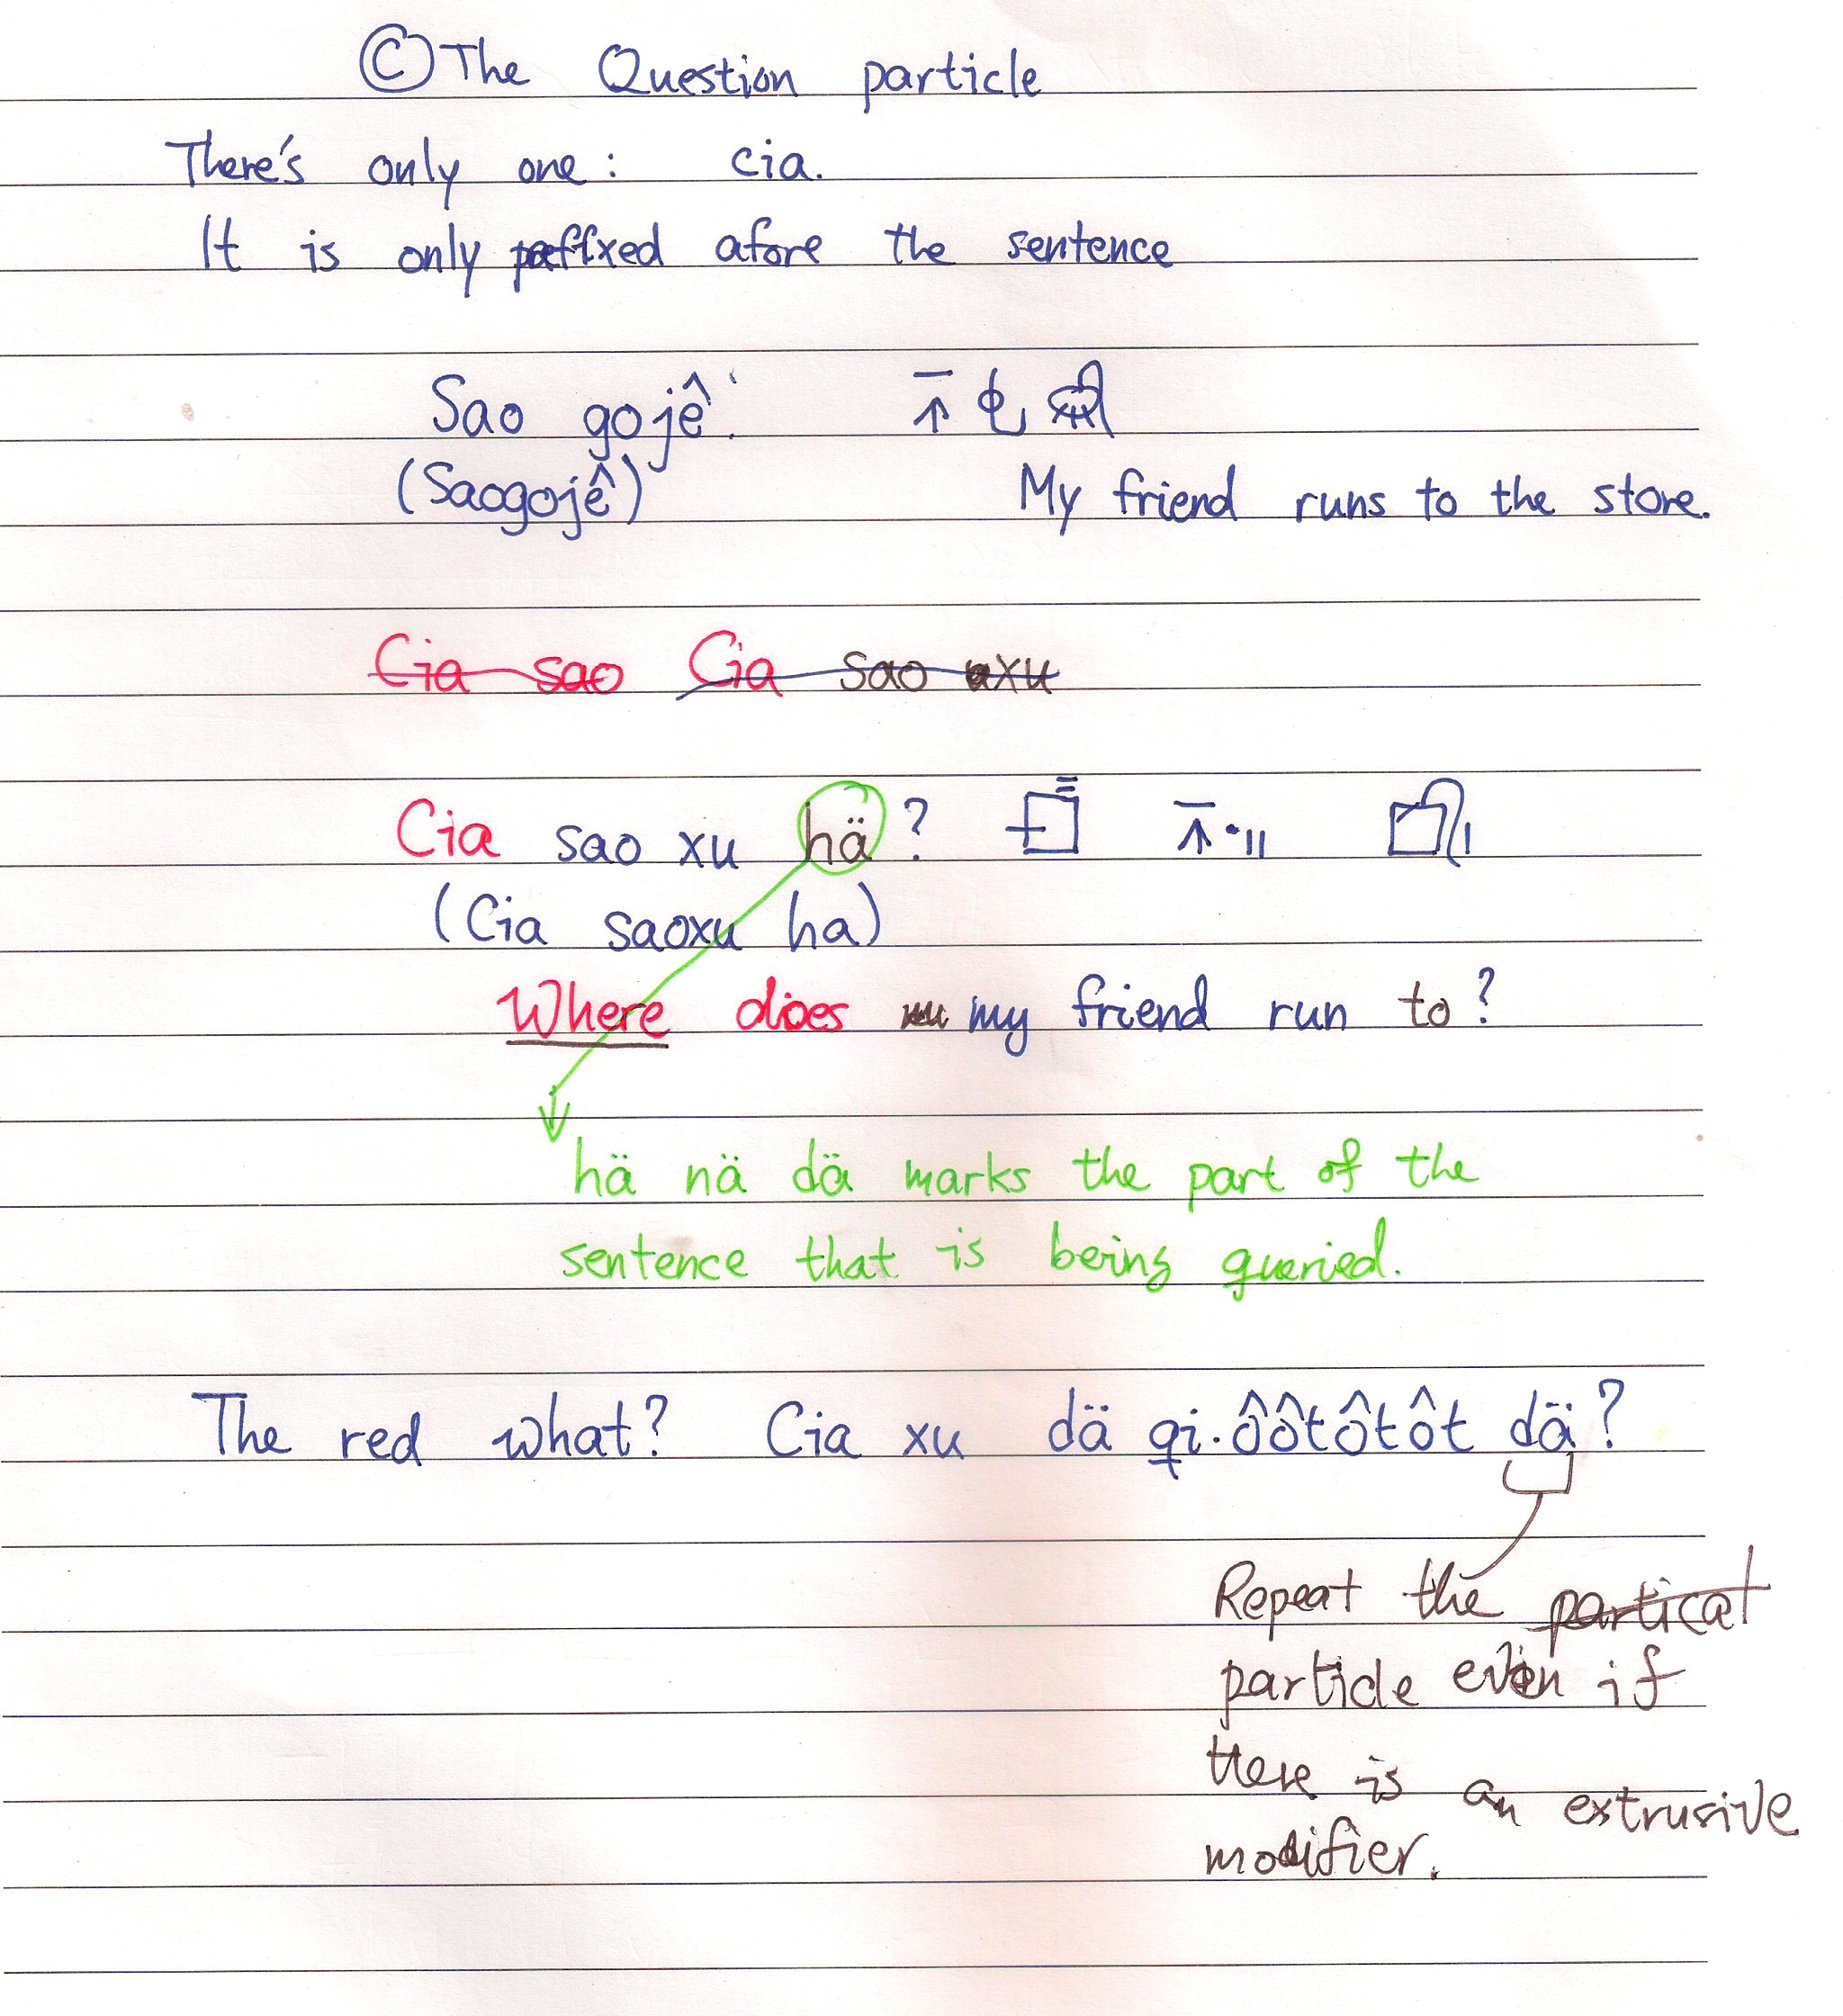 Ⓒ The Question particle
There's only one: cia.
It is only affixed afore the sentence
Sao gojê.
(Saogojê)
My friend runs to the store.
Cia sao Cia sao axu
Cia sao xu hä?
(Cia saoxu ha)
Where does my friend run to?
hä nä dä marks the part of the
sentence that is being queried.
The red what? Cia xu dä qi.ôôtôtôt dä?
Repeat the particat
particle even if
there is an extrusive
modifier.